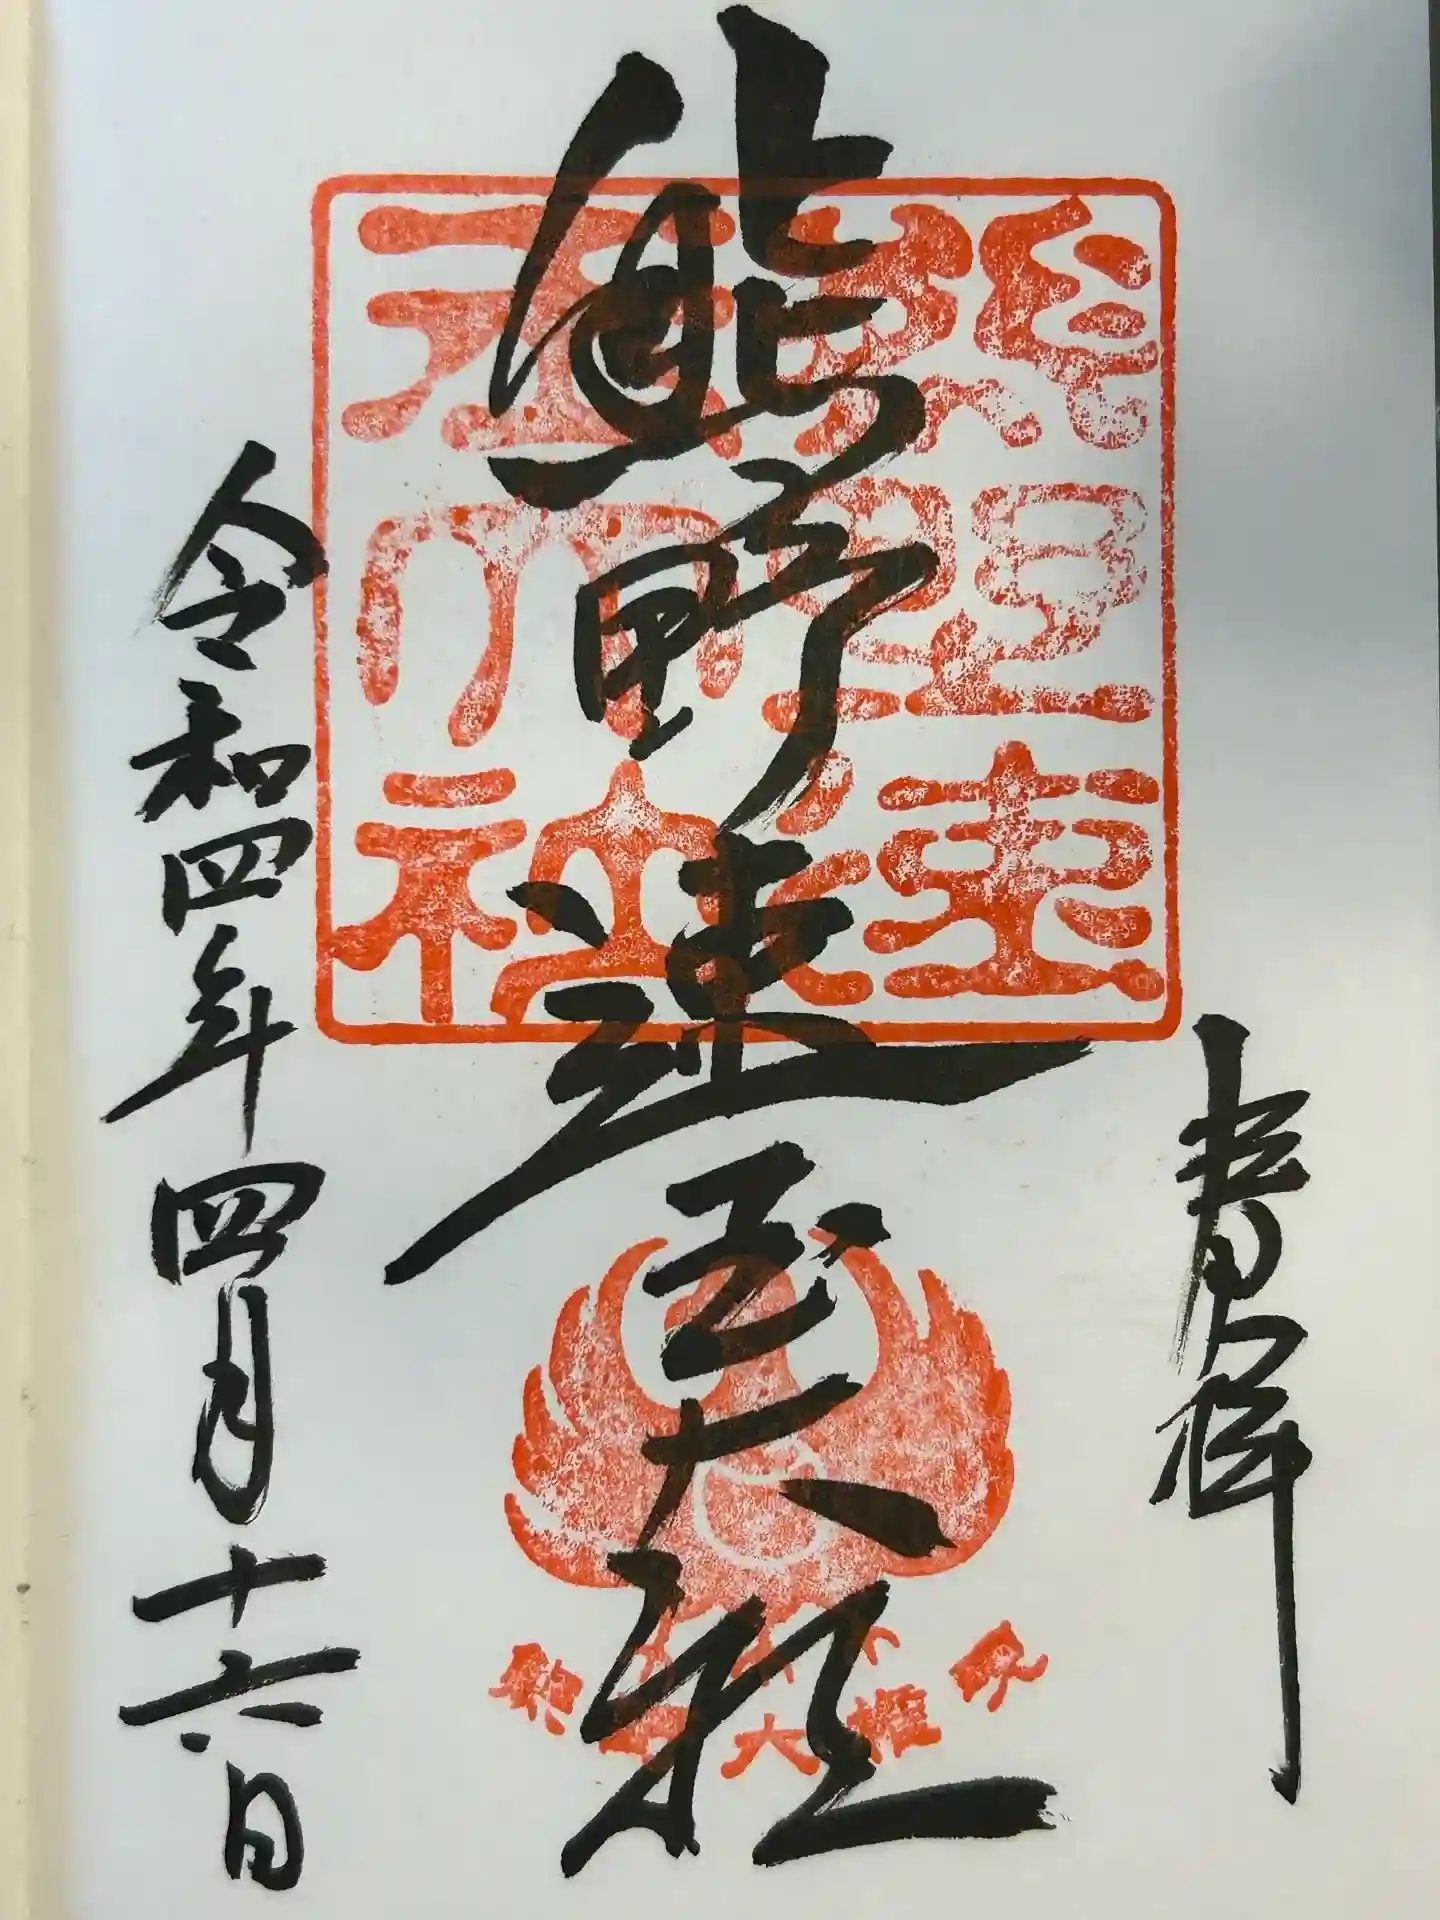 奉拝
熊野速玉大社
熊野速
玉大社
熊野大権現
令和四年四月十六日